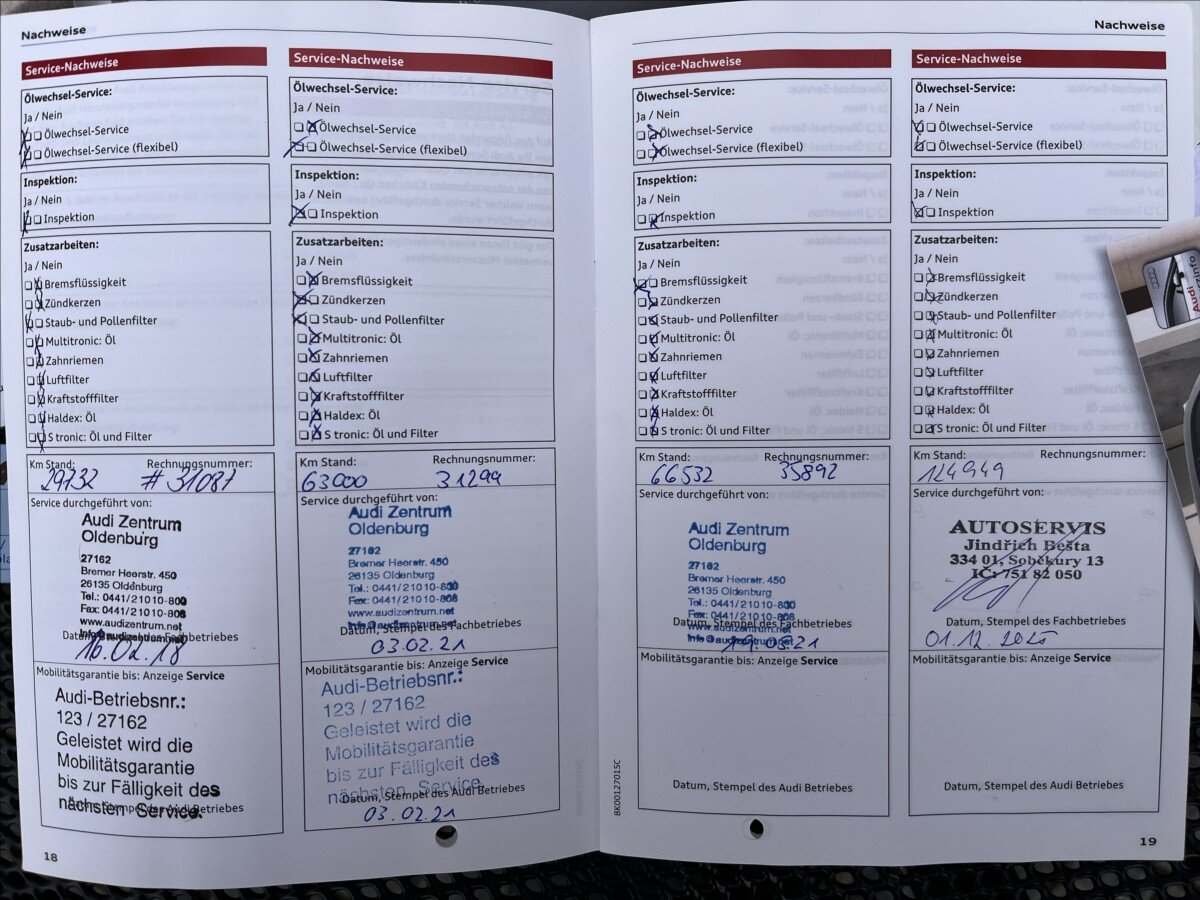 Nachweise
Service-Nachweise
Ölwechsel-Service:
Ja / Nein
Ölwechsel-Service
Ölwechsel-Service (flexibel)
Inspektion:
Ja / Nein
Inspektion
Zusatzarbeiten:
Ja / Nein
Bremsflüssigkeit
Zündkerzen
Staub- und Pollenfilter
Multitronic: Öl
Zahnriemen
Luftfilter
Kraftstofffilter
Haldex: Öl
S tronic: Öl und Filter
Km Stand: Rechnungsnummer:
29732 # 31087
Service durchgeführt von:
Audi Zentrum
Oldenburg
27162
Bremer Heerstr. 450
26135 Oldenburg
Tel.: 0441/21010-800
Fax: 0441/21010-808
www.audizentrum.net
Datum, Stempel des Fachbetriebes
16.02.18
Mobilitätsgarantie bis: Anzeige Service
Audi-Betriebsnr.:
123 / 27162
Geleistet wird die
Mobilitätsgarantie
bis zur Fälligkeit des
nächsten Service.
Datum, Stempel des Audi Betriebes
18
Service-Nachweise
Ölwechsel-Service:
Ja / Nein
Ölwechsel-Service
Ölwechsel-Service (flexibel)
Inspektion:
Ja / Nein
Inspektion
Zusatzarbeiten:
Ja / Nein
Bremsflüssigkeit
Zündkerzen
Staub- und Pollenfilter
Multitronic: Öl
Zahnriemen
Luftfilter
Kraftstofffilter
Haldex: Öl
S tronic: Öl und Filter
Km Stand: Rechnungsnummer:
63000 31299
Service durchgeführt von:
Audi Zentrum
Oldenburg
27162
Bremer Heerstr. 450
26135 Oldenburg
Tel.: 0441/21010-800
Fax: 0441/21010-808
www.audizentrum.net
Datum, Stempel des Fachbetriebes
03.02.21
Mobilitätsgarantie bis: Anzeige Service
Audi-Betriebsnr.:
123 / 27162
Geleistet wird die
Mobilitätsgarantie
bis zur Fälligkeit des
nächsten Service.
Datum, Stempel des Audi Betriebes
03.02.21
Nachweise
Service-Nachweise
Ölwechsel-Service:
Ja / Nein
Ölwechsel-Service
Ölwechsel-Service (flexibel)
Inspektion:
Ja / Nein
Inspektion
Zusatzarbeiten:
Ja / Nein
Bremsflüssigkeit
Zündkerzen
Staub- und Pollenfilter
Multitronic: Öl
Zahnriemen
Luftfilter
Kraftstofffilter
Haldex: Öl
S tronic: Öl und Filter
Km Stand: Rechnungsnummer:
66532 35892
Service durchgeführt von:
Audi Zentrum
Oldenburg
27162
Bremer Heerstr. 450
26135 Oldenburg
Tel.: 0441/21010-800
Fax: 0441/21010-808
www.audizentrum.net
Datum, Stempel des Fachbetriebes
Mobilitätsgarantie bis: Anzeige Service
Datum, Stempel des Audi Betriebes
8K0012701SC
Service-Nachweise
Ölwechsel-Service:
Ja / Nein
Ölwechsel-Service
Ölwechsel-Service (flexibel)
Inspektion:
Ja / Nein
Inspektion
Zusatzarbeiten:
Ja / Nein
Bremsflüssigkeit
Zündkerzen
Staub- und Pollenfilter
Multitronic: Öl
Zahnriemen
Luftfilter
Kraftstofffilter
Haldex: Öl
S tronic: Öl und Filter
Km Stand: Rechnungsnummer:
124949
Service durchgeführt von:
AUTOSERVIS
Jindřich Bešta
334 01, Soběkury 13
IČ: 751 82 050
Datum, Stempel des Fachbetriebes
01.12.2025
Mobilitätsgarantie bis: Anzeige Service
Datum, Stempel des Audi Betriebes
19
Audi